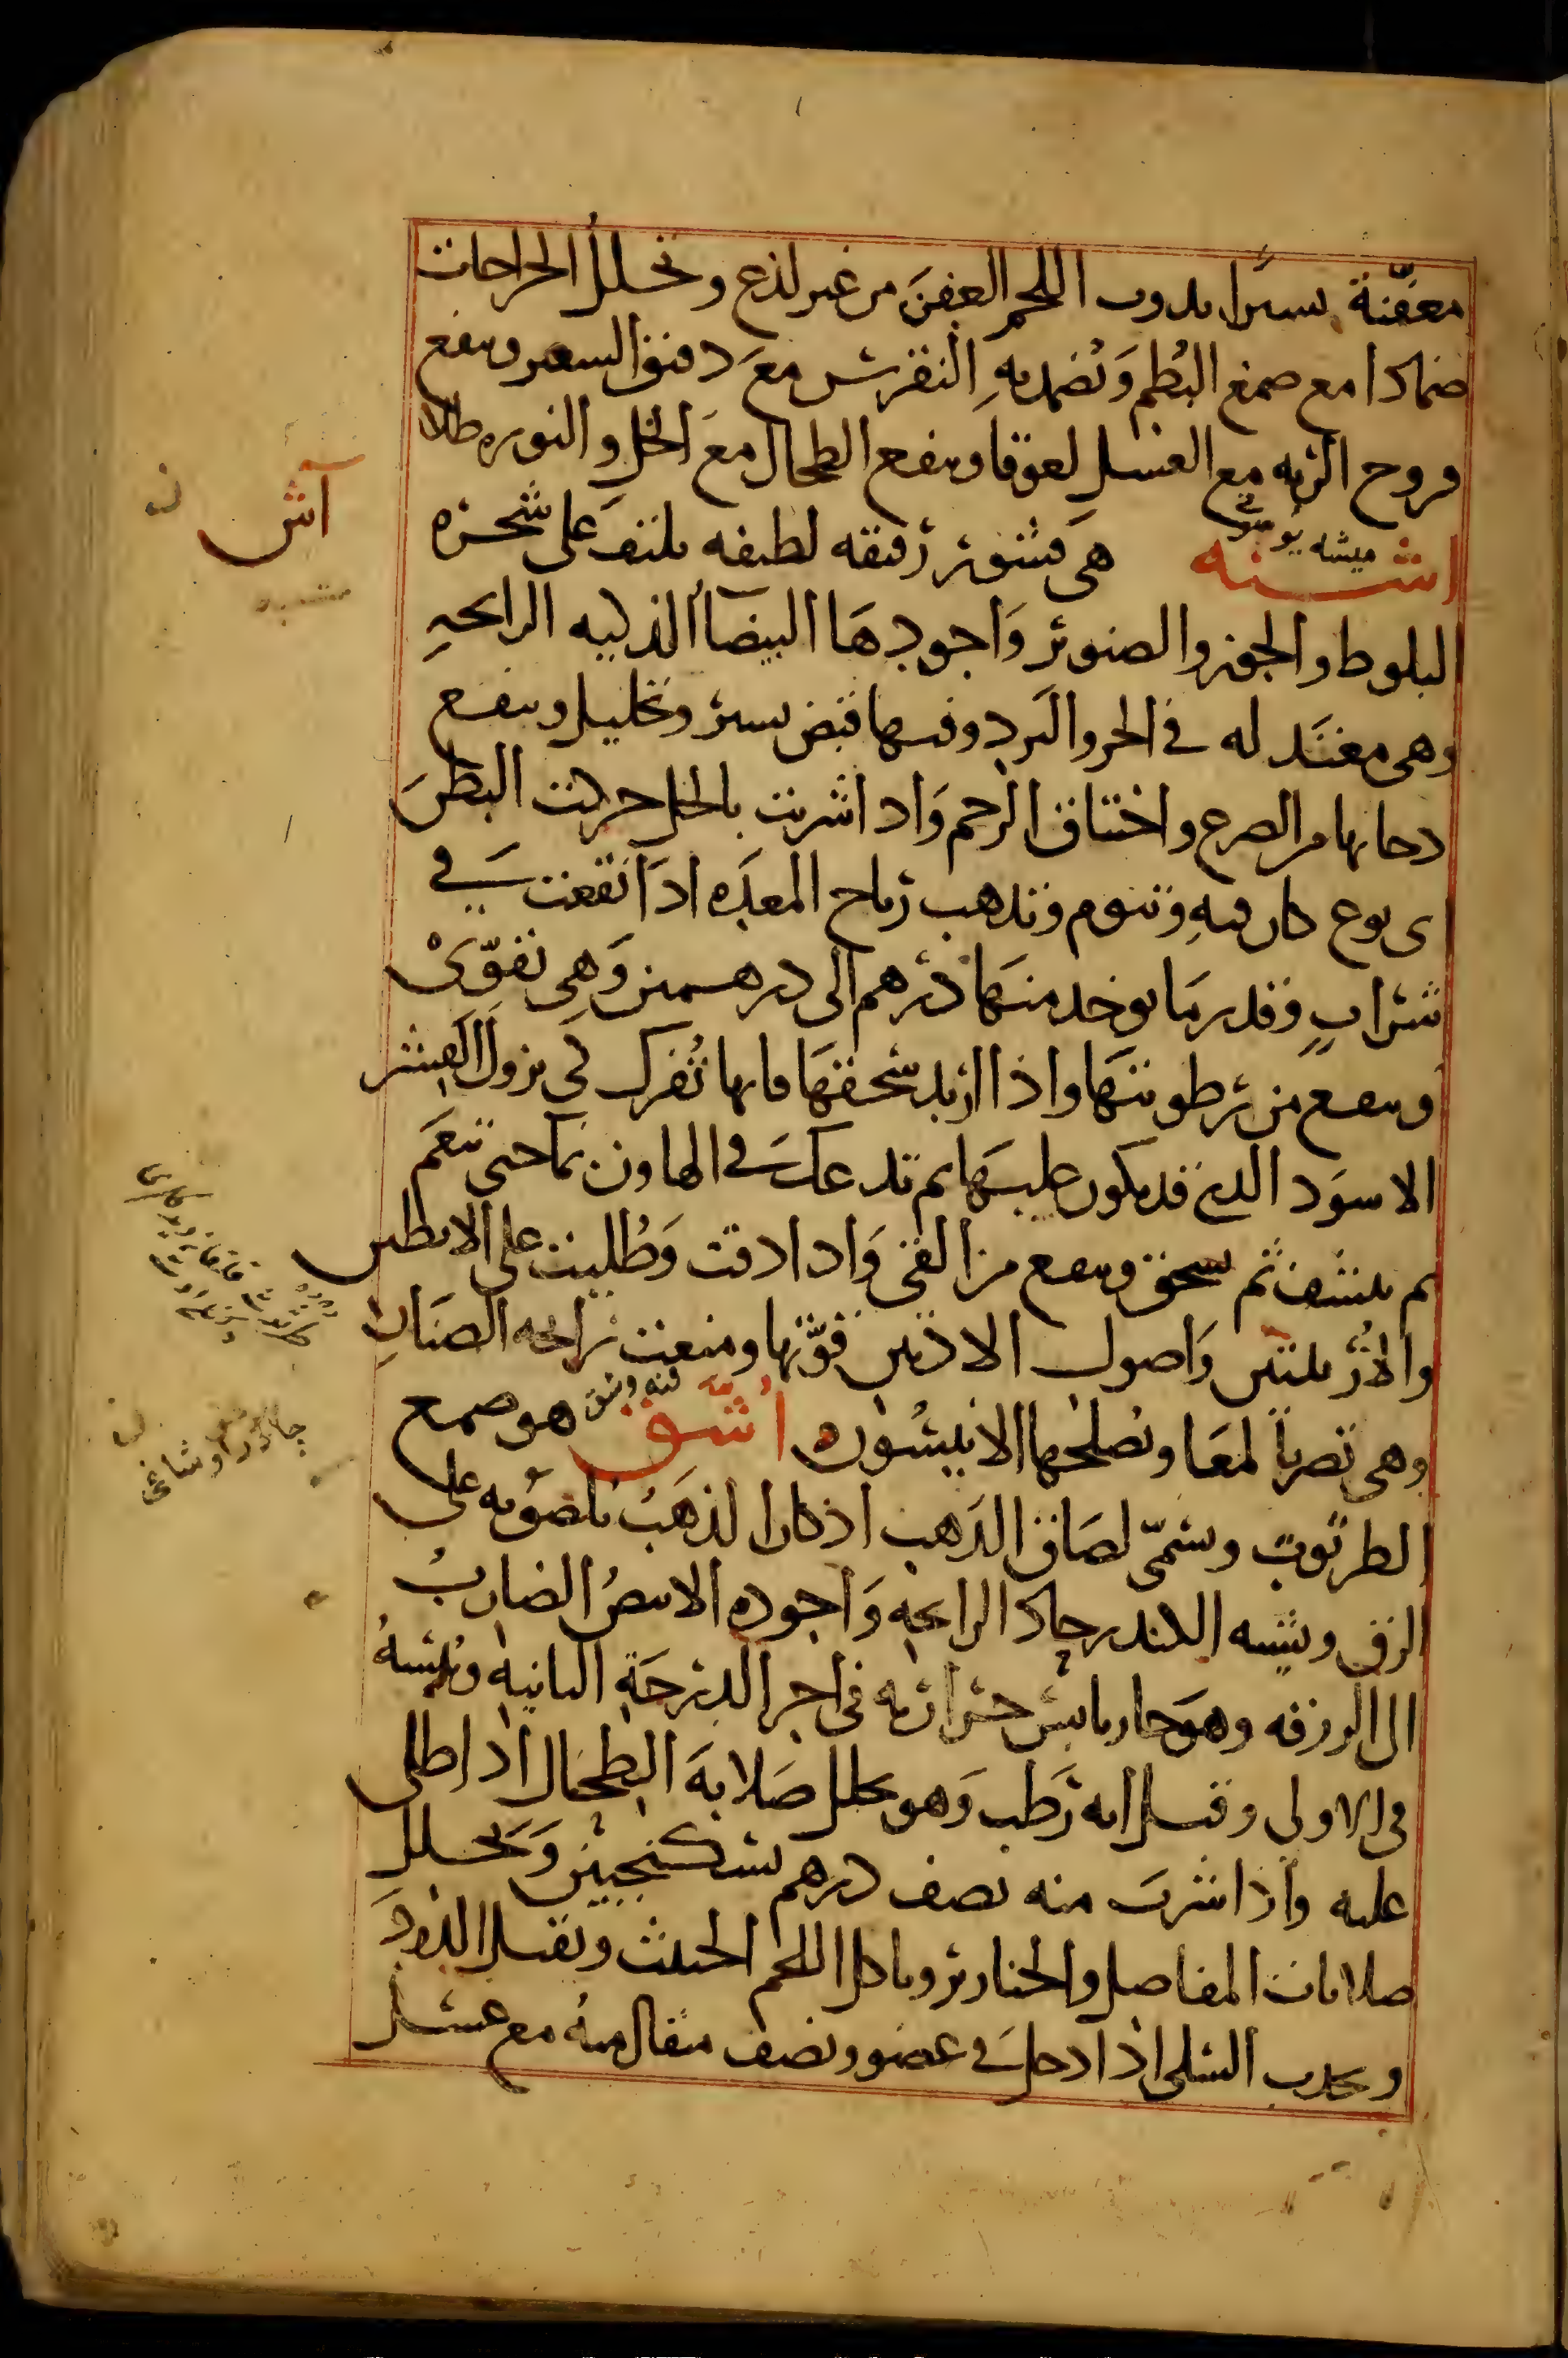 معفّنة يسيرا يذوب اللحم العفن من غير لذع وتحلل الجراحات
ضمادا مع صمغ البُطم وتضمد به النقرس مع دقيق الشعير وينفع
قروح الريه مع العسل لعوقا وينفع الطحال مع الخل والنوره طلا
اشنه ميشه يوسونى هى قشور رقيقه لطيفه يلتف على شجره
البلوط والجوز والصنوبر واجودها البيضا الذكيه الرايحه
وهى معتدله فى الحر والبرد وفيها قبض يسير وتحليل وينفع
دخانها من الصرع واختناق الرحم واذا شربت بالخل حركت البطن
اى نوع كان فيه وتنوم وتذهب رياح المعده اذا انقعت فى
شراب وقدر ما يوخذ منها درهم الى درهمين وهى تقوّى
وينفع من رطوبتها واذا اريد سحقها فانها تُفرك لى يزول القشر
الاسود الذى قد يكون عليها ثم تدعك فى الهاون بما حتى تنعم
ثم ينشف ثم يسحق وينفع من القى واذا دقت وطُليت على الابطين
والارُ بلتين واصول الاذنين قوّتها ومنعت رايحه الصنان
وهى تضر بالمعا ويُصلحها الانيسُون اُشّق هو صمغ
الطرثوث ويسمّى لصاق الذهب اذ كان الذهب يلصُو به على
الرق ويشبه الكندر حاد الرايحه واجوده الابيضُ الضاربُ
الى الزرقه وهو حار يابس حرارته فى اخر الدرجة الثانيه ويبسهُ
فى الاولى وقيل انه رطب وهو يحلل صلابة الطحال اذا طلى
عليه واذا شرب منه نصف درهم بسكنجبين ويحلل
صلابات المفاصل والخنازير وياكل اللحم الخبيث ويقتل الدود
ويجذب السلى اذا دخل فى عضو ونصف مثقال منهُ مع عسل
آش